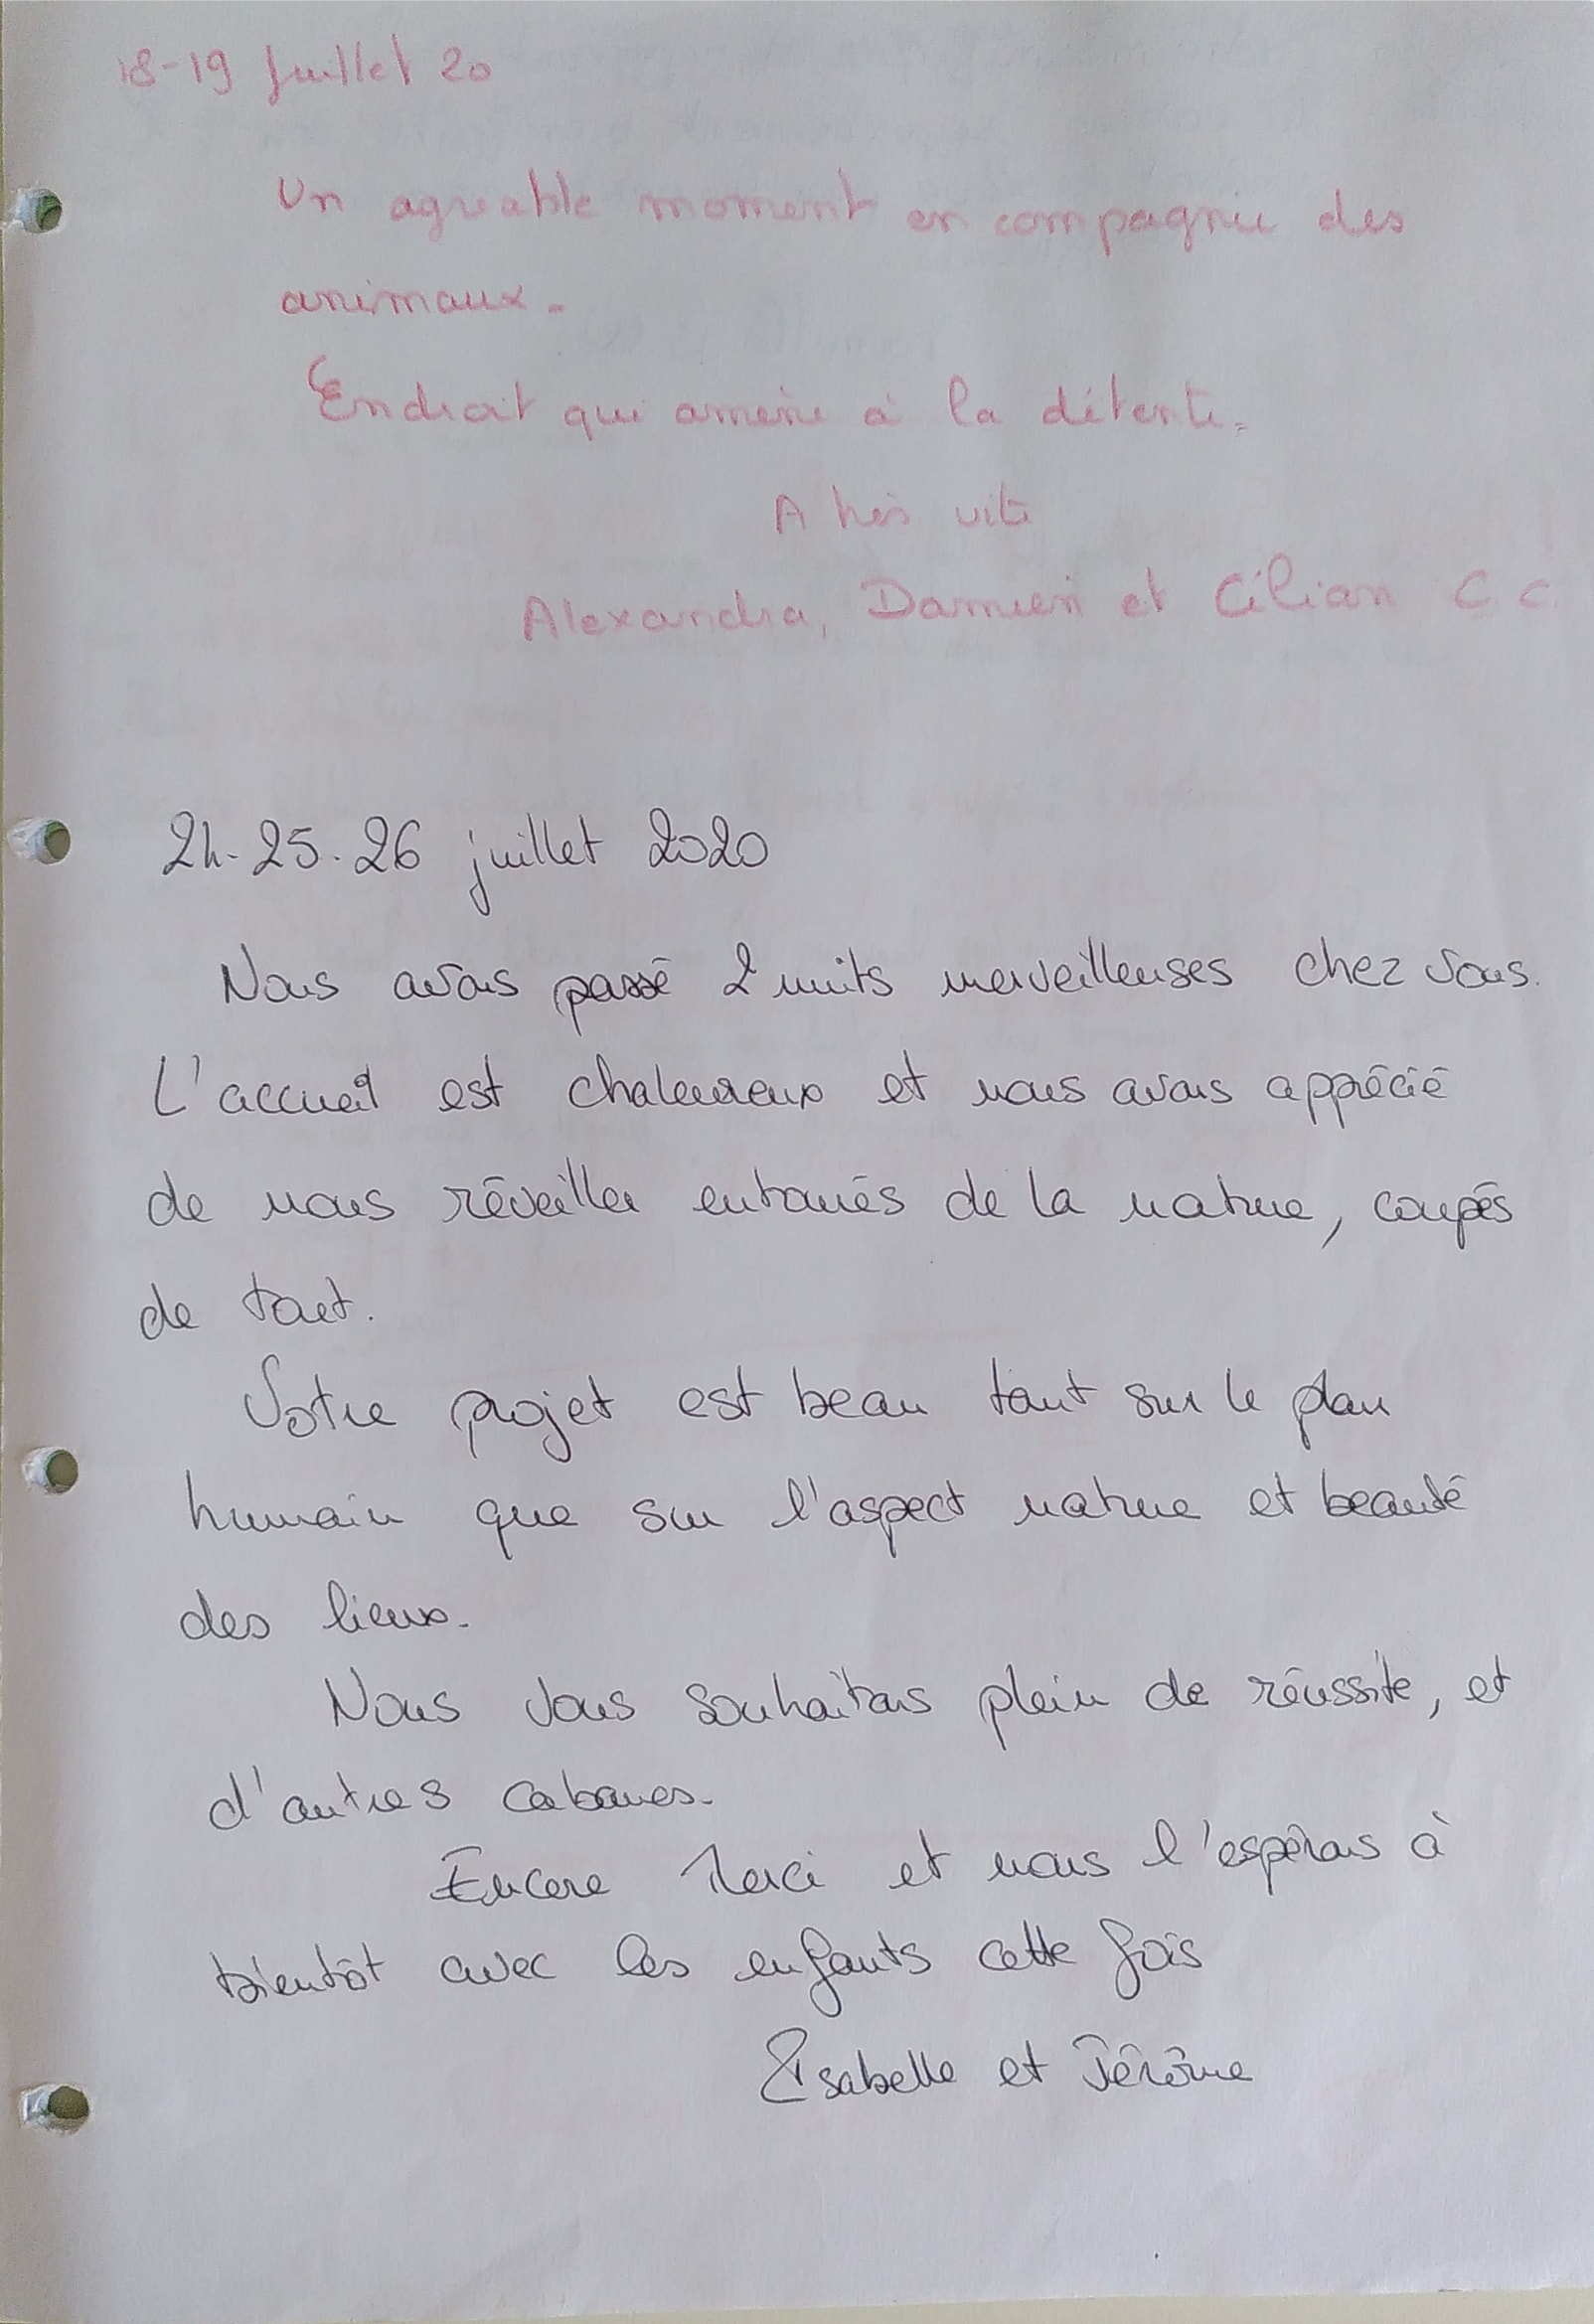 18-19 Juillet 20
Un agréable moment en compagnie des
animaux.
Endroit qui amène à la détente.
A très vite
Alexandra, Damien et Cilian C.C
24-25-26 juillet 2020
Nous avons passé 2 nuits merveilleuses chez vous.
L'accueil est chaleureux et nous avons apprécié
de nous réveiller entourés de la nature, coupés
de tout.
Votre projet est beau tant sur le plan
humain que sur l'aspect nature et beauté
des lieux.
Nous vous souhaitons plein de réussite, et
d'autres cabanes.
Encore Merci et nous l'espérons à
bientôt avec les enfants cette fois
Isabelle et Jérôme